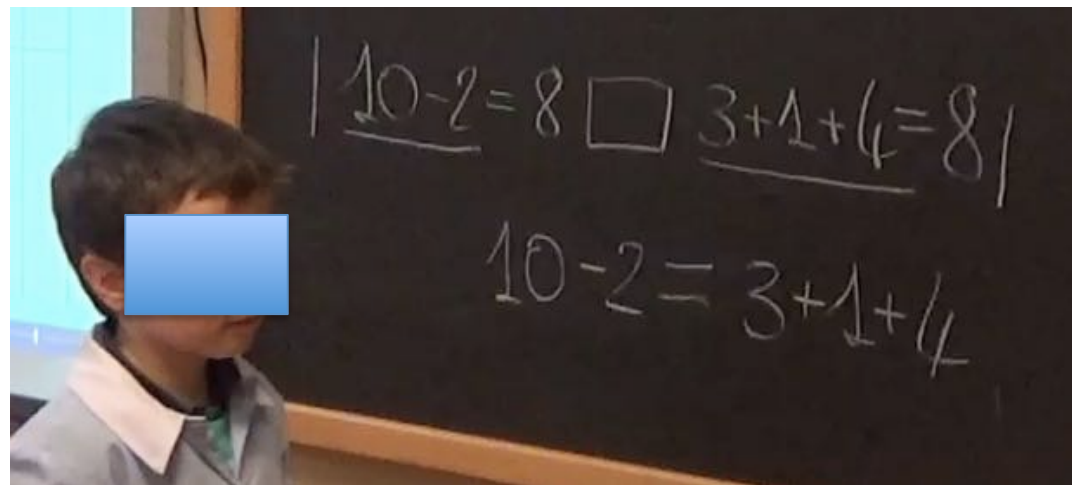 | 10-2=8 □ 3+1+4=8 |
10-2=3+1+4